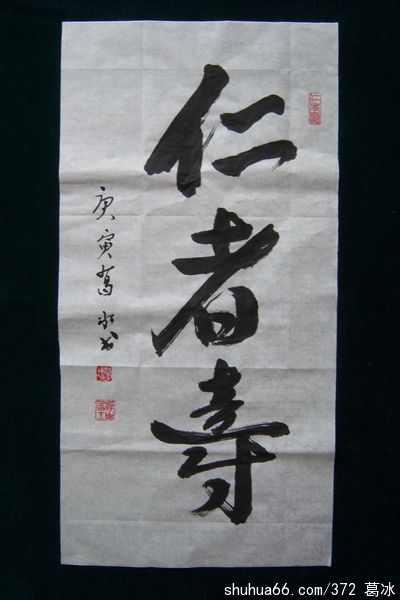 仁者壽
庚寅葛冰书
shuhua66.com/372 葛冰